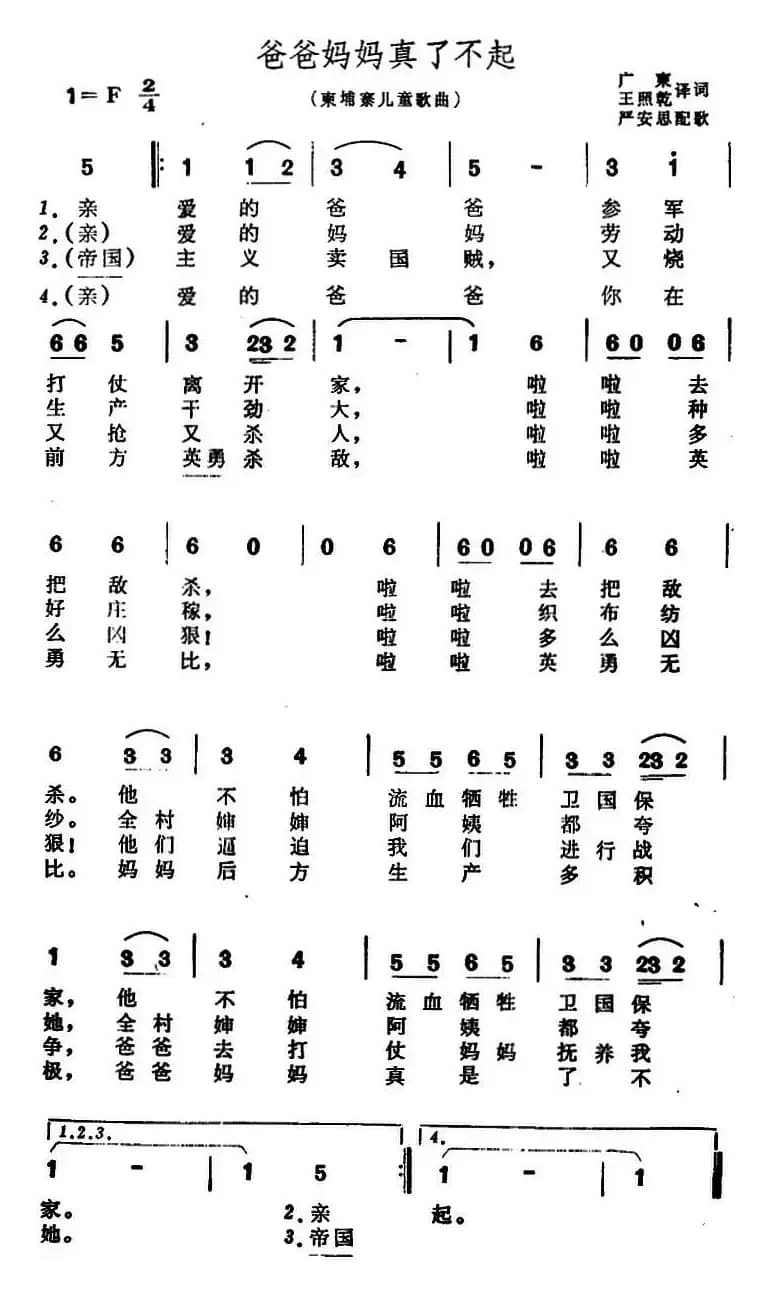 爸爸妈妈真了不起
1=F 2/4
（柬埔寨儿童歌曲）
广柬
王照乾 译词
严安思配歌
5 𝄆 1 1 2 | 3 4 | 5 - | 3 i |
1.亲 爱 的 爸 爸 参 军
2.(亲) 爱 的 妈 妈 劳 动
3.(帝国) 主 义 卖 国 贼, 又 烧
4.(亲) 爱 的 爸 爸 你 在
6 6 5 | 3 23 2 | 1 - | 1 6 | 60 06 |
打 仗 离 开 家, 啦 啦 去
生 产 干 劲 大, 啦 啦 种
又 抢 又 杀 人, 啦 啦 多
前 方 英勇 杀 敌, 啦 啦 英
6 6 | 6 0 | 0 6 | 60 06 | 6 6 |
把 敌 杀, 啦 啦 去 把 敌
好 庄 稼, 啦 啦 织 布 纺
么 凶 狠! 啦 啦 多 么 凶
勇 无 比, 啦 啦 英 勇 无
6 3 3 | 3 4 | 5 5 6 5 | 3 3 23 2 |
杀。他 不 怕 流 血 牺 牲 卫 国 保
纱。全 村 婶 婶 阿 姨 都 夸
狠! 他 们 逼 迫 我 们 进 行 战
比。妈 妈 后 方 生 产 多 积
1 3 3 | 3 4 | 5 5 6 5 | 3 3 23 2 |
家, 他 不 怕 流 血 牺 牲 卫 国 保
她, 全 村 婶 婶 阿 姨 都 夸
争, 爸 爸 去 打 仗 妈 妈 抚 养 我
极, 爸 爸 妈 妈 真 是 了 不
1.2.3. 4.
1 - | 1 5 𝄇 1 - | 1 ‖
家。 2.亲 起。
她。 3.帝国